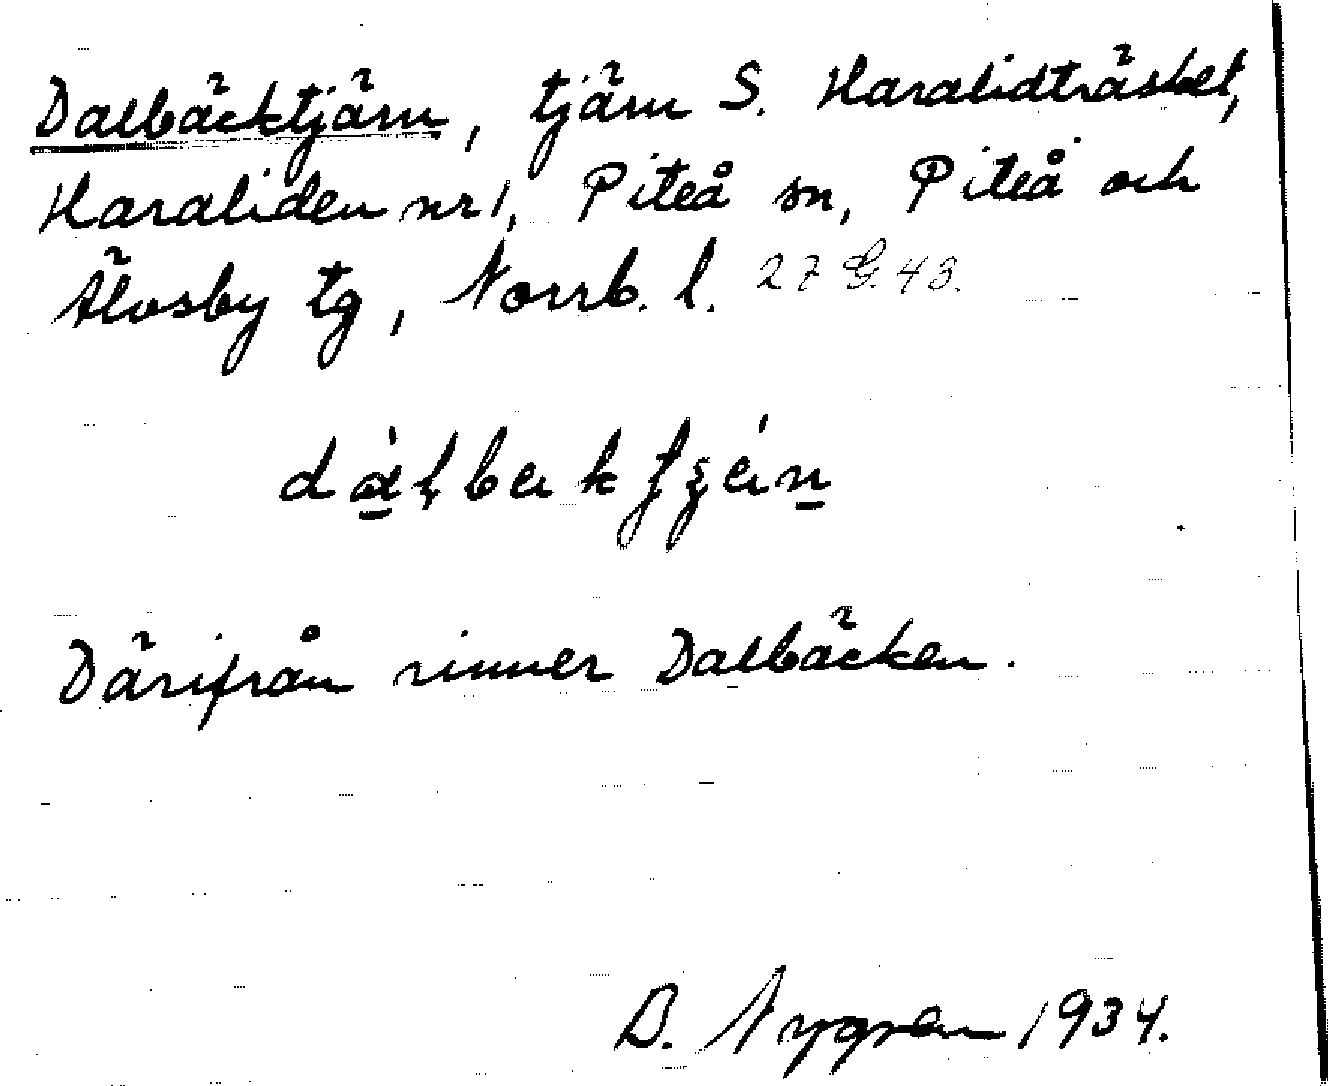 Dalbäcktjärn, tjärn S. Haralidträsket,
Haraliden nr 1, Piteå sn, Piteå och
Älvsby tg, Norrb. l. 27 G. 43.
Därifrån rinner Dalbäcken.
B. Nygren 1934.